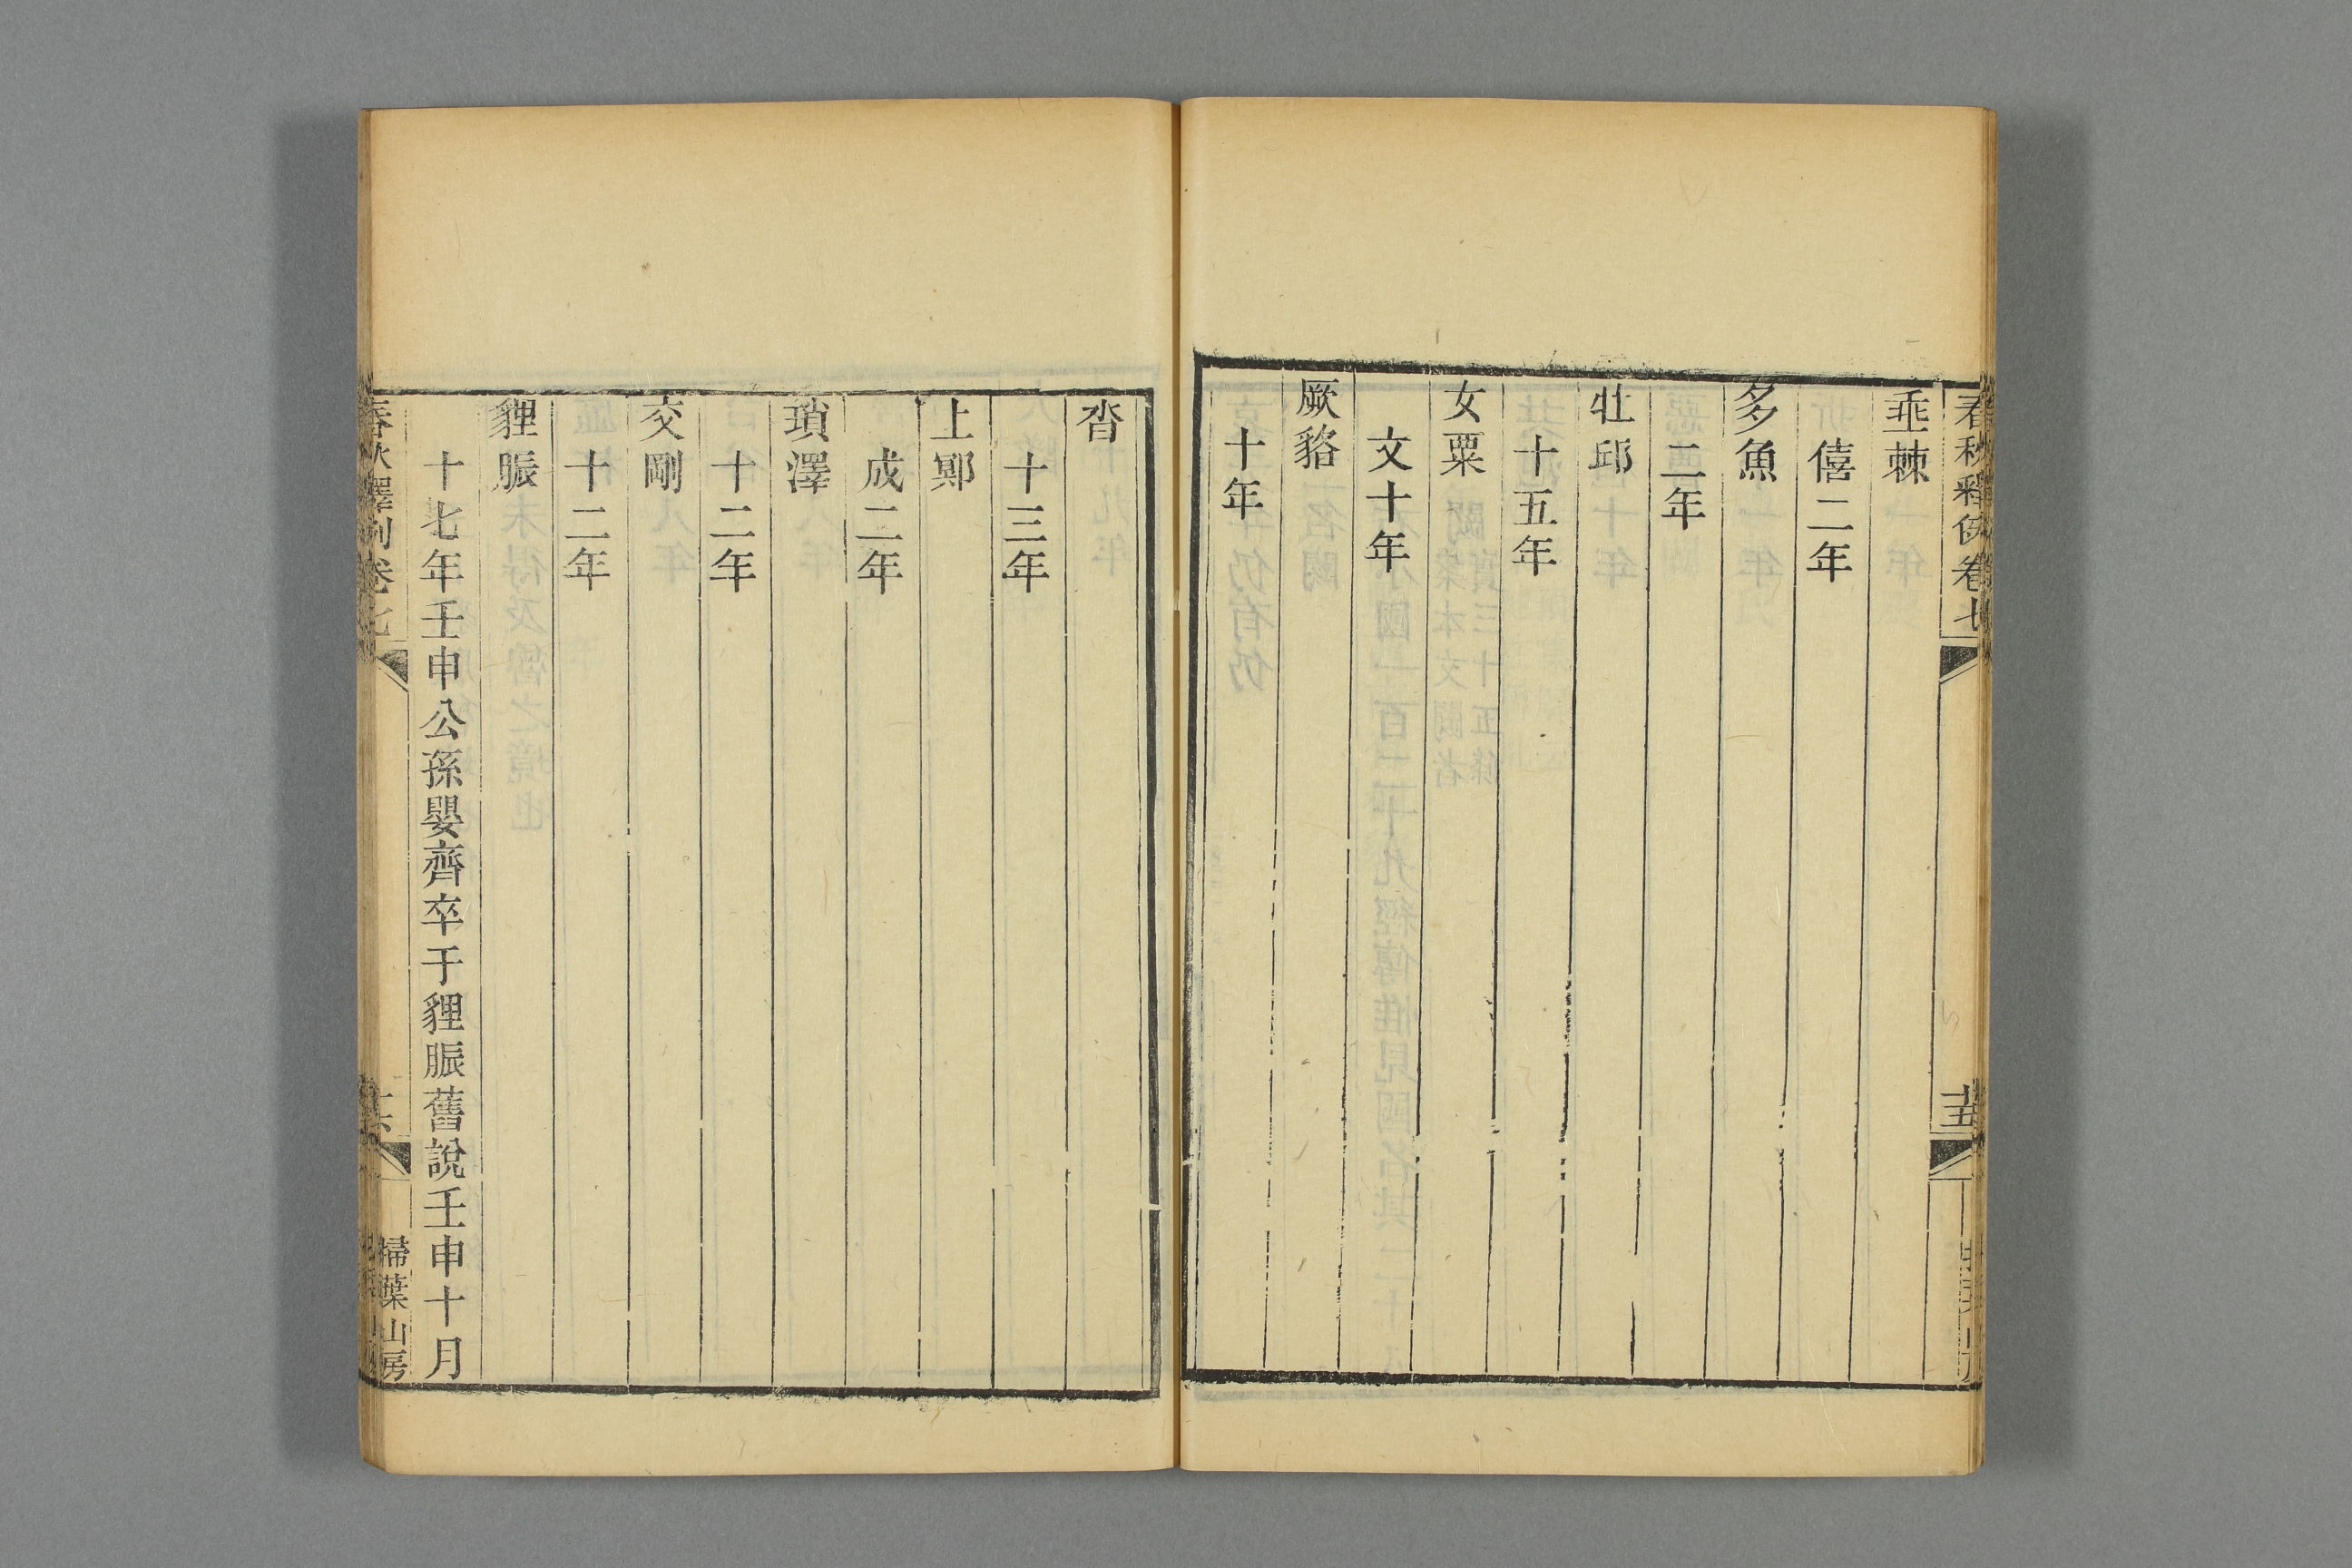 春秋釋例卷七
十五
垂棘
僖二年
多魚
二年
牡邱
十五年
女栗
文十年
厥貉
十年
沓
十三年
上鄍
成二年
瑣澤
十二年
交剛
十二年
貍脤
十七年壬申公孫嬰齊卒于貍脤舊說壬申十月
春秋釋例卷七
十六
掃葉山房